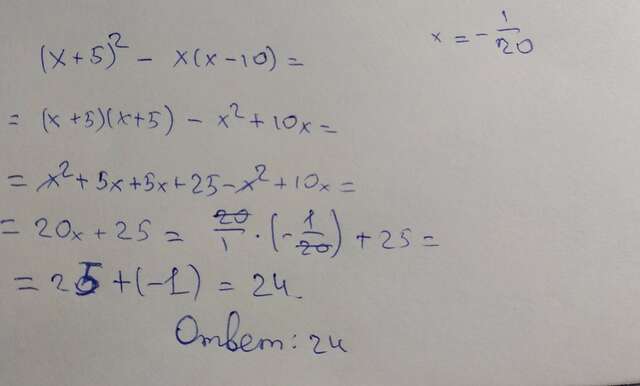 (x+5)² - x(x-10) =
x = -1/20
= (x+5)(x+5) - x² + 10x =
= x² + 5x + 5x + 25 - x² + 10x =
= 20x + 25 = 20/1 · (-1/20) + 25 =
= 25 + (-1) = 24.
Ответ: 24